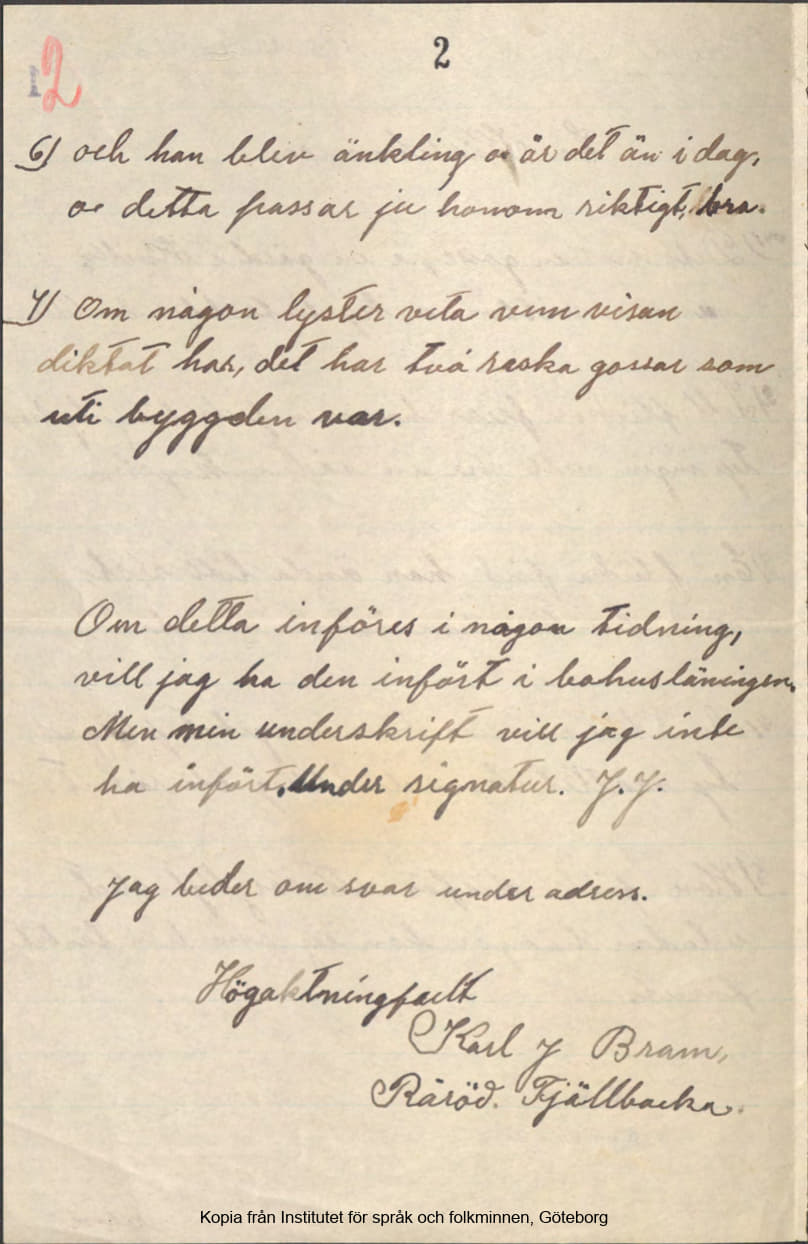 2
2
6) och han blev änkling o är det än i dag,
o detta passar ju honom riktigt, bra.
7) Om någon lyster veta vem visan
diktat har, det har två raska gossar som
uti byggden var.
Om detta införes i någon tidning,
vill jag ha den infört i bohusläningen.
Men min underskrift vill jag inte
ha infört. Under signatur. J.J.
Jag beder om svar under adress.
Högaktningfult
Karl J Bram,
Råröd. Fjällbacka.
Kopia från Institutet för språk och folkminnen, Göteborg